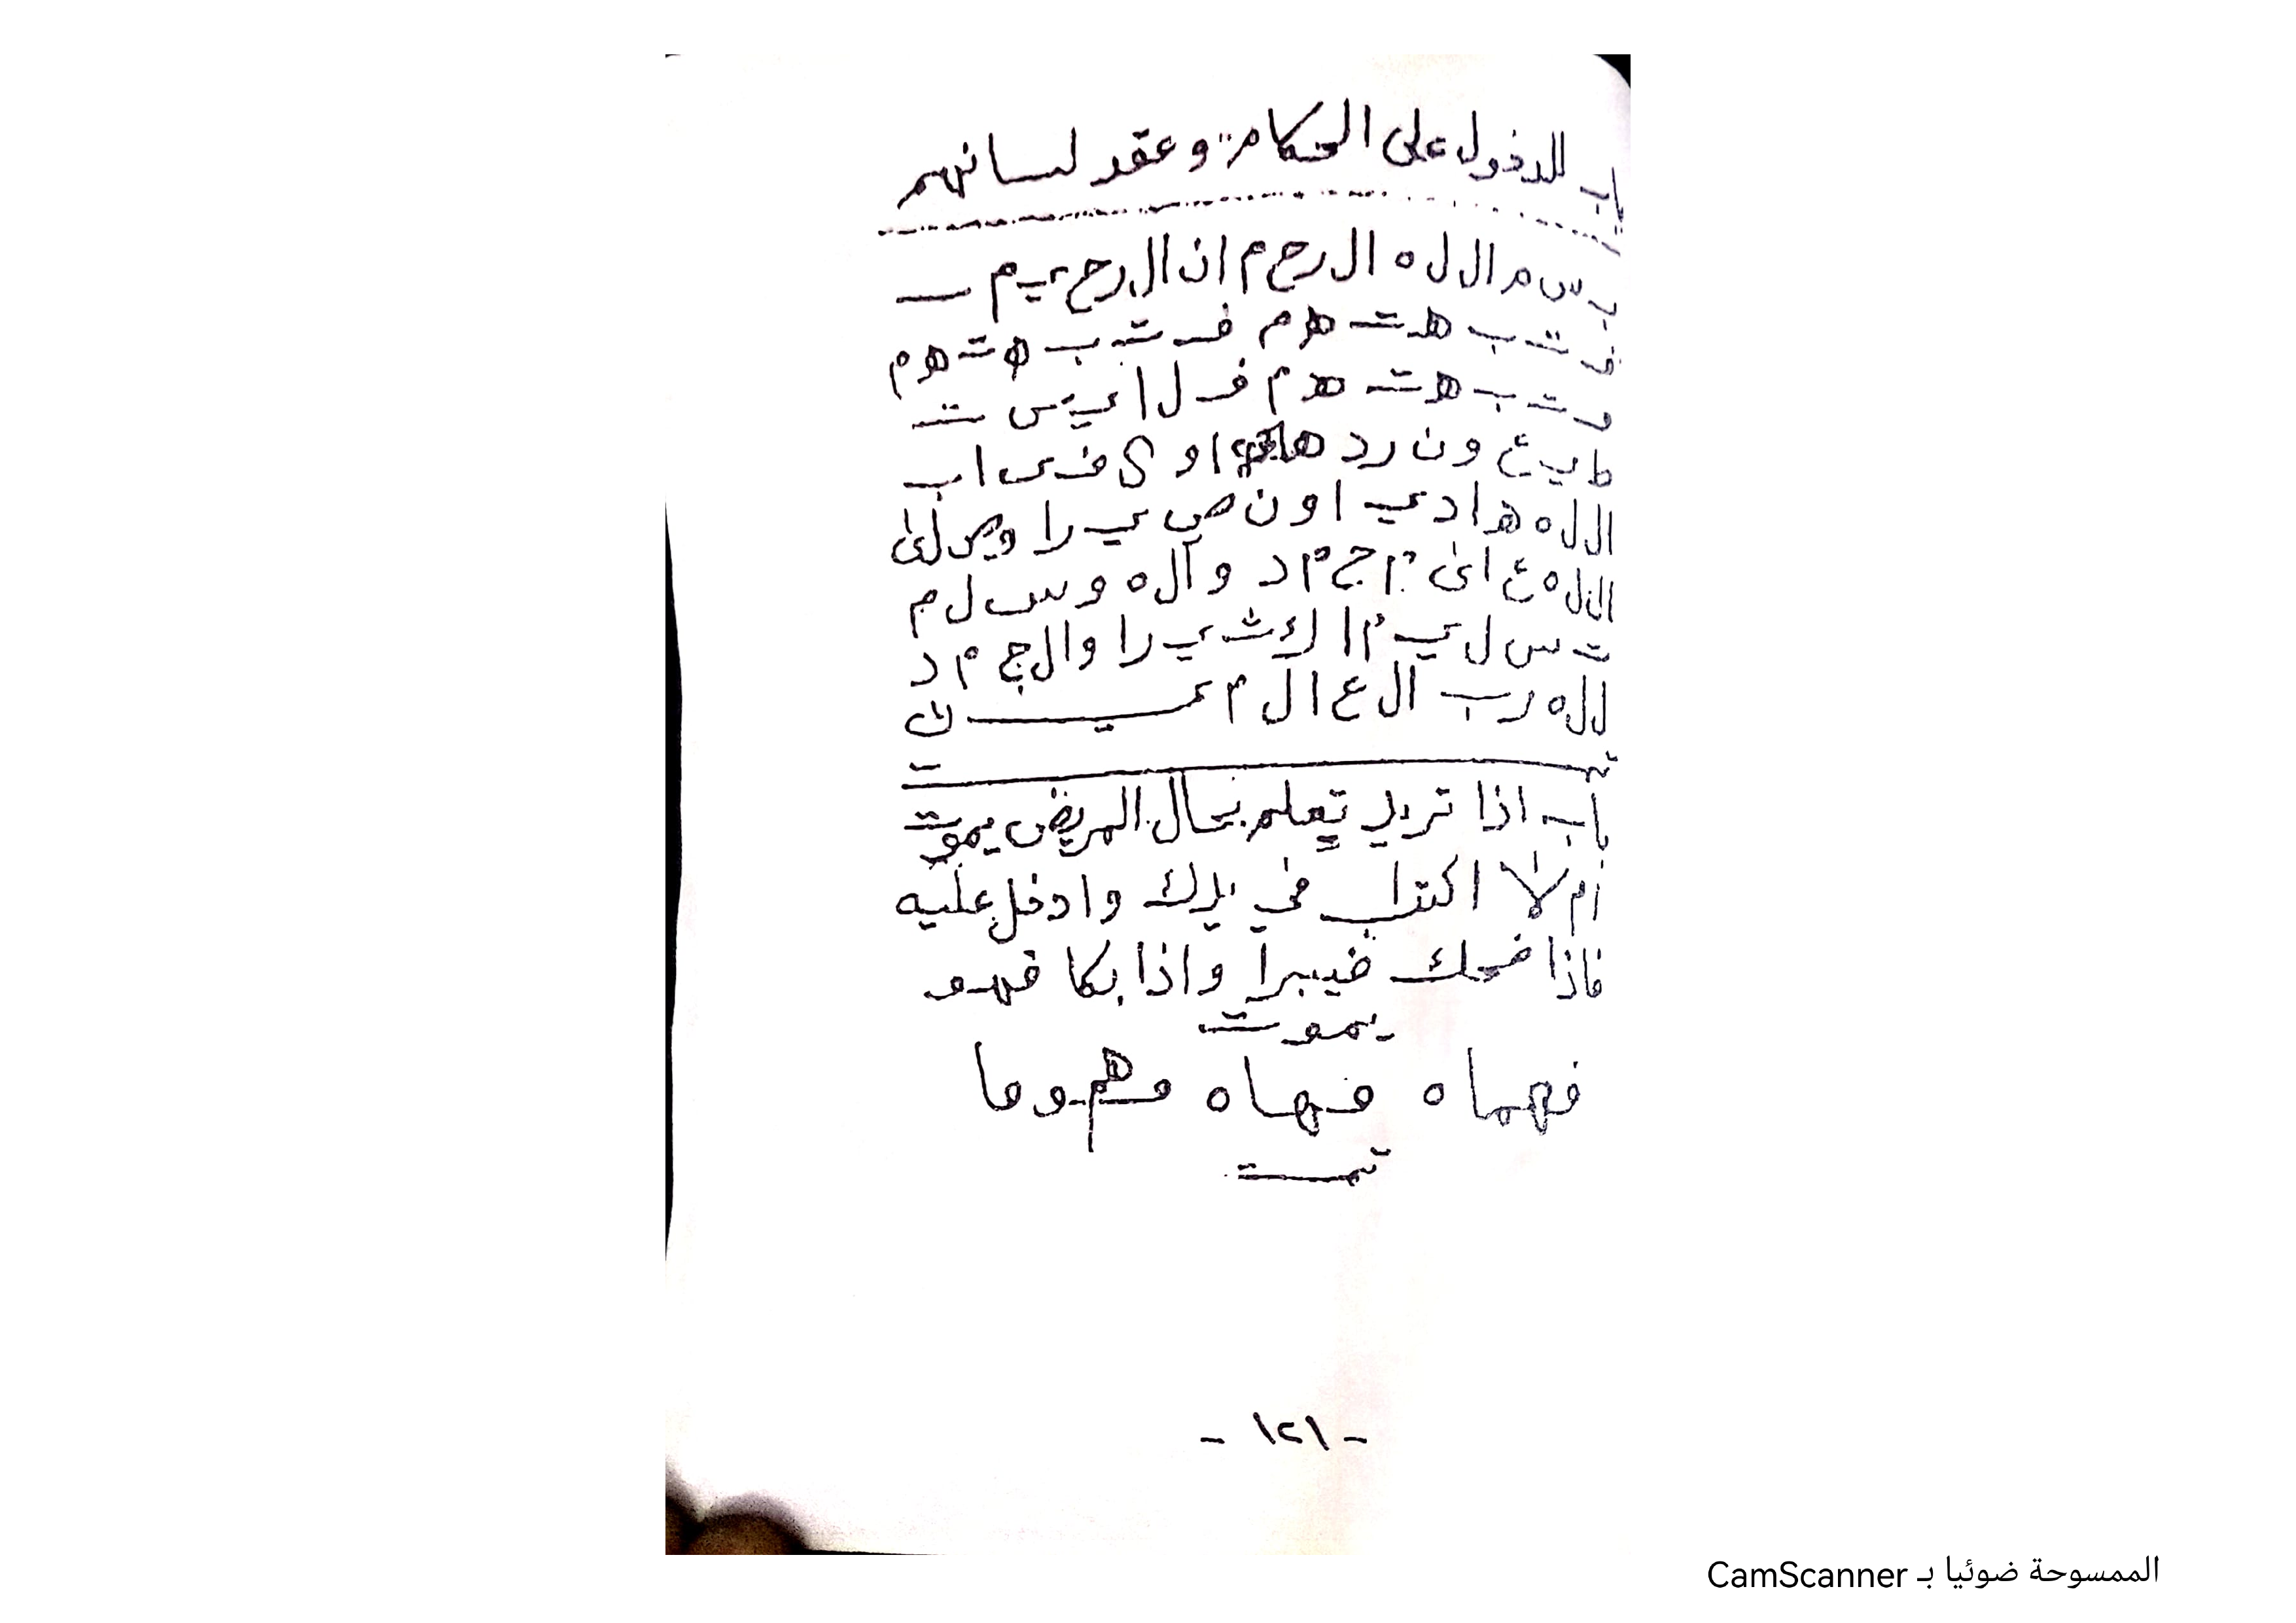 باب للدخول على الحكام وعقد لسانهم
ب س م ال ل ه ال رح م ان ال رح ي م
ف ت ب هت هم ف ت ب ه ت هم
و ت ب هت هم ف ل ا ي س ت
ط ي ع ون رد ها او ك ف ى اب
ال ل ه ه ا د ي ا و ن ص ي را وص لى
ال ل ه ع لى م ح م د و آل ه و س ل م
ت س ل ي م ا ك ث ي را وال ح م د
لل ه رب ال ع ا ل م ي ن
تمت
باب اذا تريد تعلم بحال المريض يموت
ام لا اكتب في يدك وادخل عليه
فاذا ضحك فيبرا واذا بكا فهو
يموت
فهما ه فها ه فهم وما
تمت
- ١٢١ -
الممسوحة ضوئيا بـ CamScanner